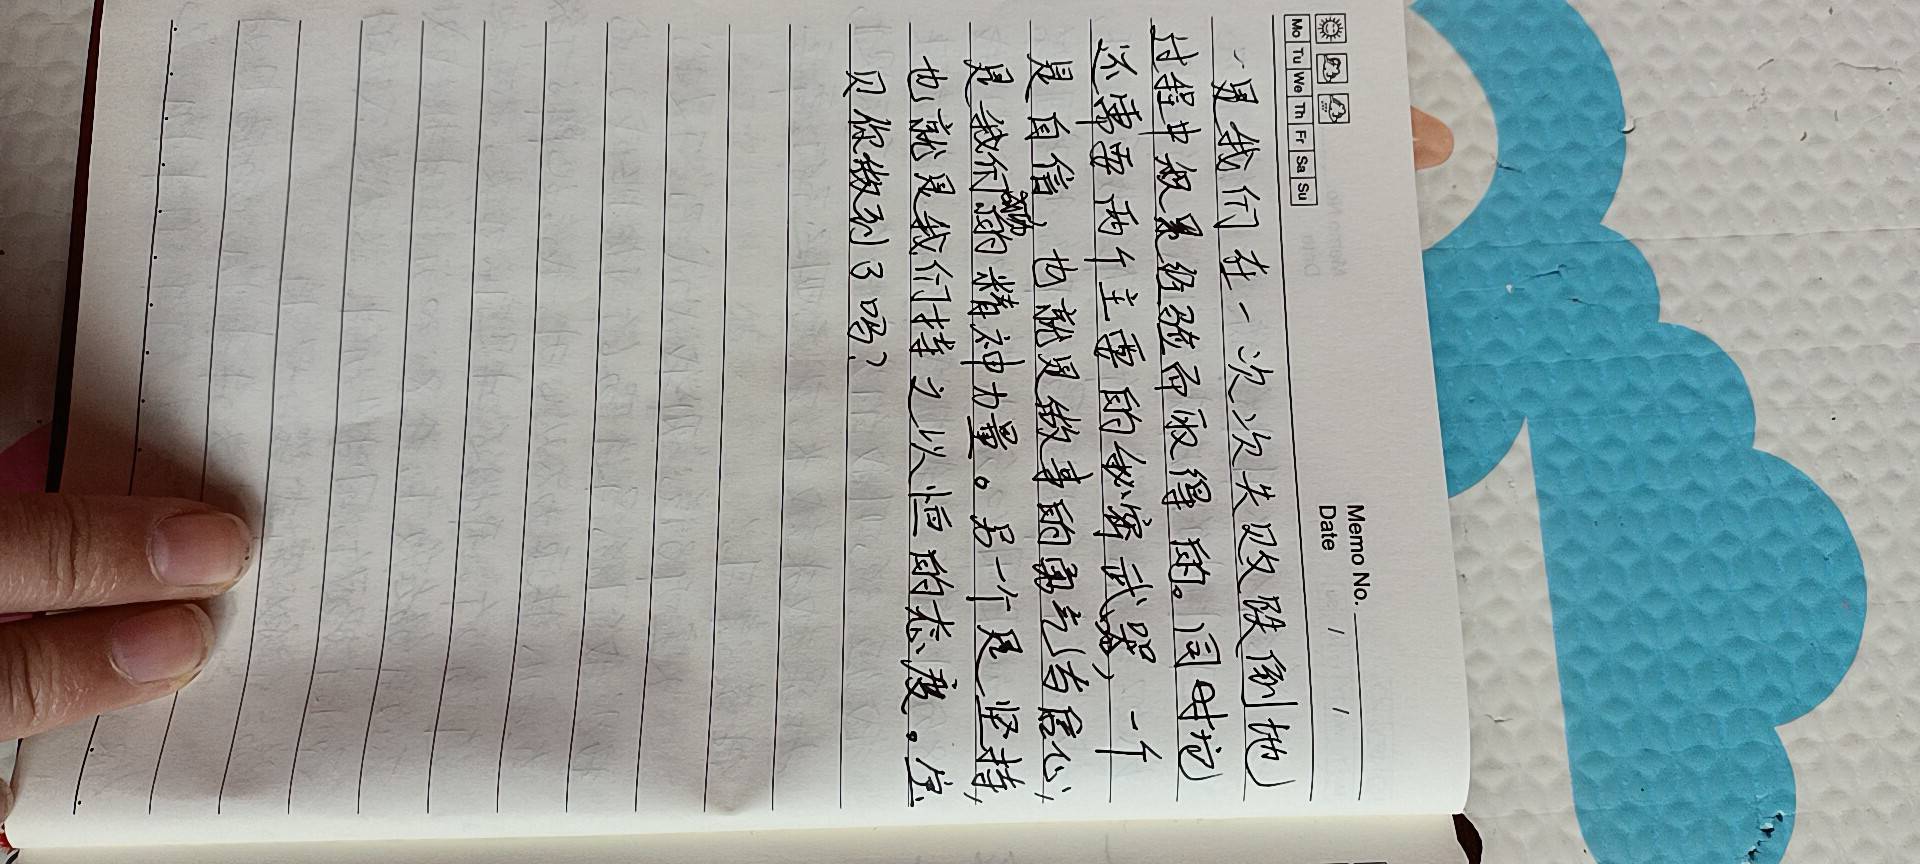 Memo No.
Mo Tu We Th Fr Sa Su
Date / /
是我们在一次次失败跌倒地
过程中积累经验而取得的。同时它
还需要两个主要的秘密武器，一个
是自信，也就是做事的勇气与信心，
是我们的精神力量。另一个是坚持，
也就是我们持之以恒的态度。宝
贝你做到了吗？